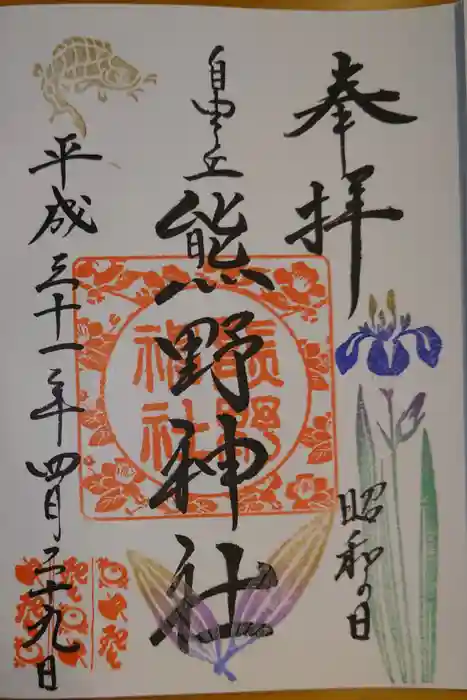 奉拝
昭和の日
自由ヶ丘
熊野神社
熊野
神社
平成三十一年四月二十九日